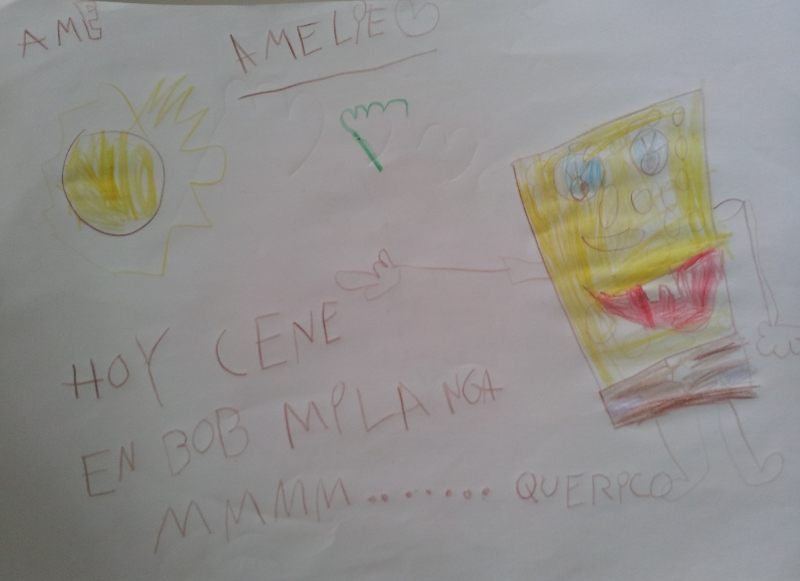 AME
AMELIE
HOY CENE
EN BOB MILANGA
MMMM........ QUERICO